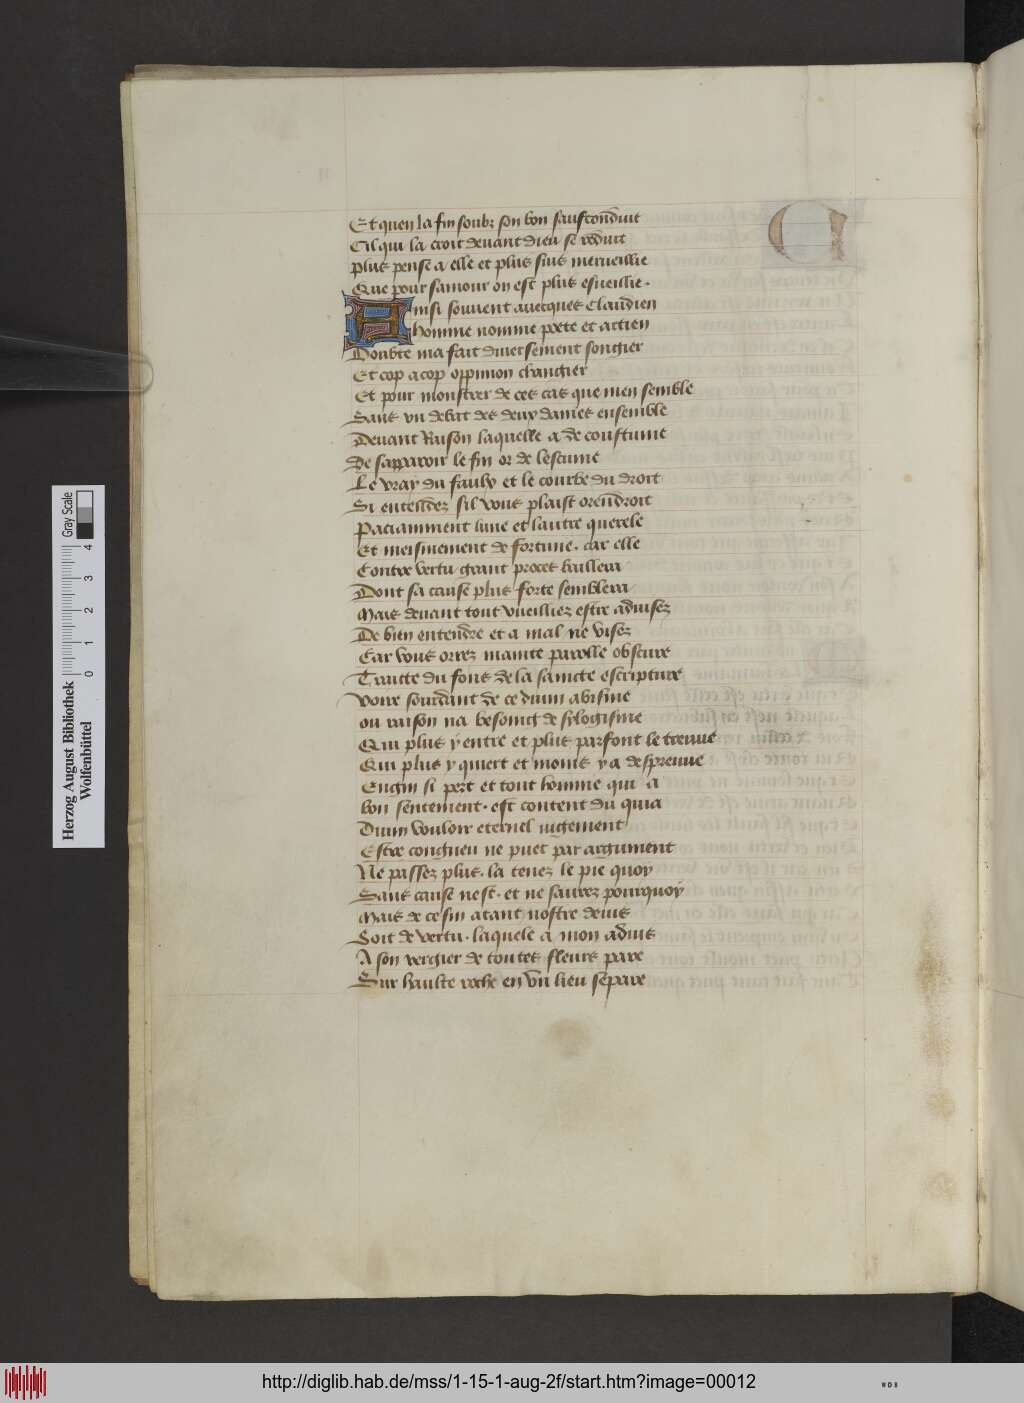 Et quen la fin soubz son bon saufconduit
Cil qui la croit devant dieu se reduit
plus pense a elle et plus suis merveillie
Que pour samour on est plus esveillie.
Ainsi souvent avecques Claudien
homme nomme poete et actien
Doubte ma fait diversement songier
Et cop a cop oppinion changier
Et pour monstrer de ces cas que men semble
Sans un debat des deux dames ensemble
Devant Raison laquelle a de coustume
De sapparoir le fin or de lescume
Le vray du faulx et le courbe du droit
Si entendez sil vous plaist orendroit
Paciamment lune et lautre querele
Et meismement de fortune. car elle
Contre vertu grant proces baillera
Dont sa cause plus forte semblera
Mais devant tout vueilliez estre advisez
De bien entendre et a mal ne visez
Car vous orrez mainte parolle obscure
Traicte du fons de la saincte escripture
voire sourdant de ce divin abisme
ou raison na besoing de silogisme
Qui plus y entre et plus parfont le treuve
Qui plus y quiert et moins y a despreuve
Engin si pert et tout homme qui a
bon sentement. est content du quia
Divin vouloir eternel iugement
Estre congneu ne puet par argument
Ne passez plus. la tenez le pie quoy
Sans cause nest. et ne saurez pourquoy
Mais de ce fin atant nostre devis
Soit de vertu. laquele a mon advis
A son vergier de toutes fleurs pare
Sur haulte roche en un lieu separe
Herzog August Bibliothek
Wolfenbüttel
0 1 2 3 4
Gray Scale
http://diglib.hab.de/mss/1-15-1-aug-2f/start.htm?image=00012
WDB